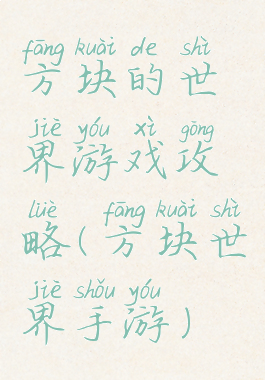 fāng kuài de shì
方块的世
jiè yóu xì gōng
界游戏攻
lüè fāng kuài shì
略(方块世
jiè shǒu yóu
界手游)